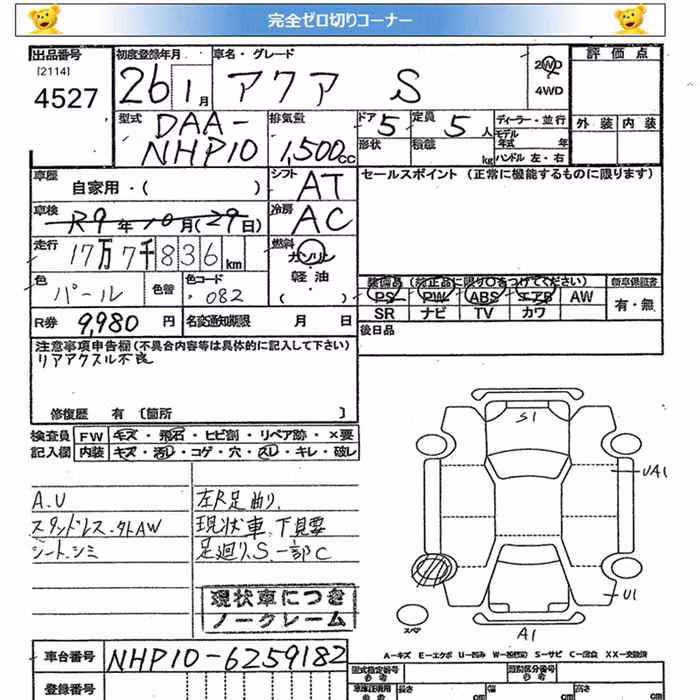 完全ゼロ切りコーナー
出品番号 [2114] 4527
初度登録年月 26 1月
車名・グレード アクア S
2WD 4WD
評価点
外装 内装
型式 DAA-NHP10
排気量 1,500cc
ドア 5 形状
定員 5人 積載 kg
ディーラー・並行
モデル年式 年
ハンドル 左・右
車歴 自家用・( )
シフト AT
セールスポイント (正常に機能するものに限ります)
車検 R9年10月(29日)
冷房 AC
走行 17万7千836km
燃料 ガソリン 軽油 ( )
色 パール 色替
色コード 082
装備品 (純正品に限り○をつけてください) 新車保証書
PS PW ABS エアB AW 有・無
SR ナビ TV カワ
R券 9,980円
名変通知期限 月 日
後日品
注意事項申告欄 (不具合内容等は具体的に記入して下さい)
リアアクスル不良
修復歴 有 [箇所 ]
検査員 FW キズ・飛石・ヒビ割・リペア跡・×要
記入欄 内装 キズ・汚レ・コゲ・穴・スレ・キレ・破レ
A.U
スタッドレス・外AW
シート・シミ
左R足曲り、
現状車、下見要
足廻り、S、一部C
現状車につき
ノークレーム
S1
UA1
U1
A1
スペア
A-キズ E-エクボ U-凹み W-補修跡 S-サビ C-腐食 XX-交換済
車台番号 NHP10-6259182
型式指定番号 参考
類別区分番号 参考
登録番号
車庫証明用 参考 長さ cm 幅 cm 高さ cm